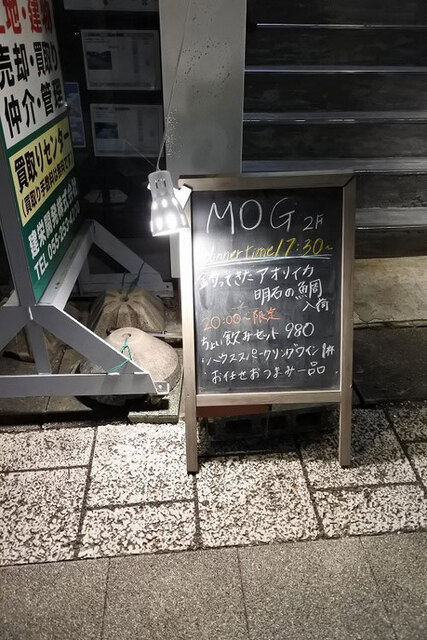 地・建物
売却・買取り
仲介・管理
買取りセンター
(買取り手数料は無料です)
TEL 055-
MOG 2F
Dinner time 17:30~
釣ってきたアオリイカ
明石の鯛
入荷
20:00~限定
ちょい飲みセット 980
・ハウススパークリングワイン 1杯
・お任せおつまみ一品